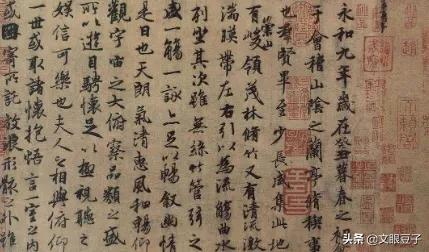 永和九年歲在癸丑暮春之初
于會稽山陰之蘭亭脩稧事
也羣賢畢至少長咸集此地
有崇山峻領茂林脩竹又有清流激
湍暎帶左右引以為流觴曲水
列坐其次雖無絲竹管弦之
盛一觴一詠亦足以暢敘幽情
是日也天朗氣清惠風和暢仰
觀宇宙之大俯察品類之盛
所以遊目騁懷足以極視聽之
娛信可樂也夫人之相與俯仰
一世或取諸懷抱悟言一室之內
或因寄所託放浪形骸之外雖
@文眼豆子